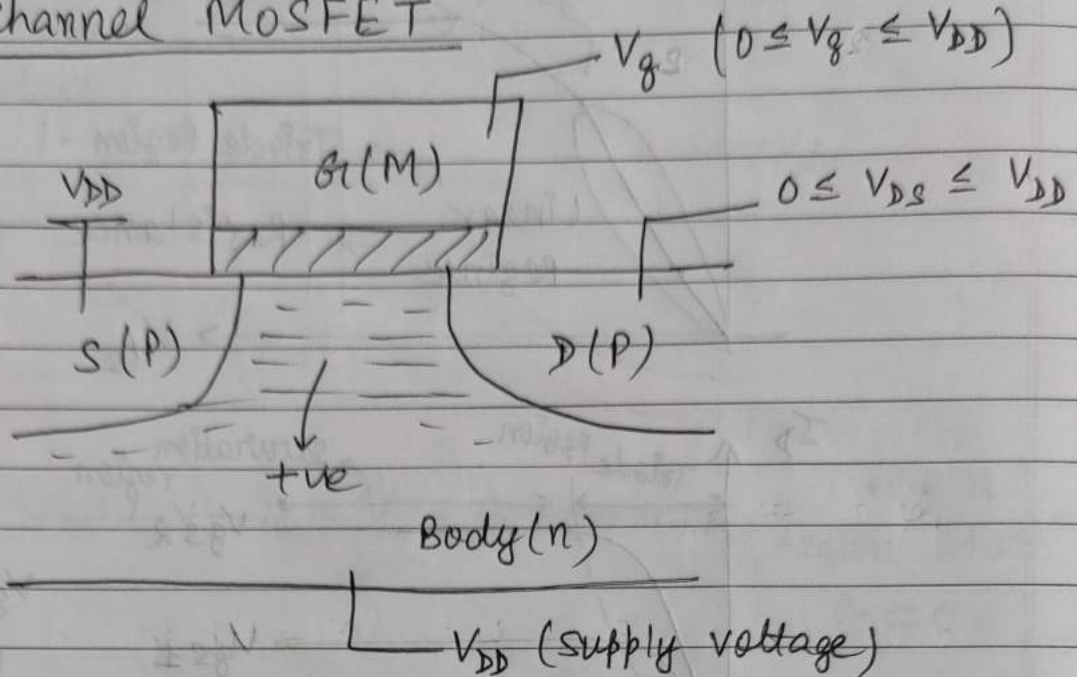 hannel MOSFET
Vg (0 ≤ Vg ≤ VDD)
G(M)
VDD
0 ≤ VDS ≤ VDD
S(P)
D(P)
+ve
Body(n)
VDD (supply voltage)